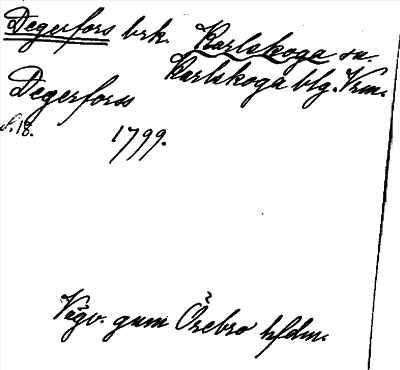 Degerfors brk. Karlskoga sn.
Karlskoga blg. Vrm.
Degerforss
S. 18. 1799.
Vägv. gnm Örebro hfdm.